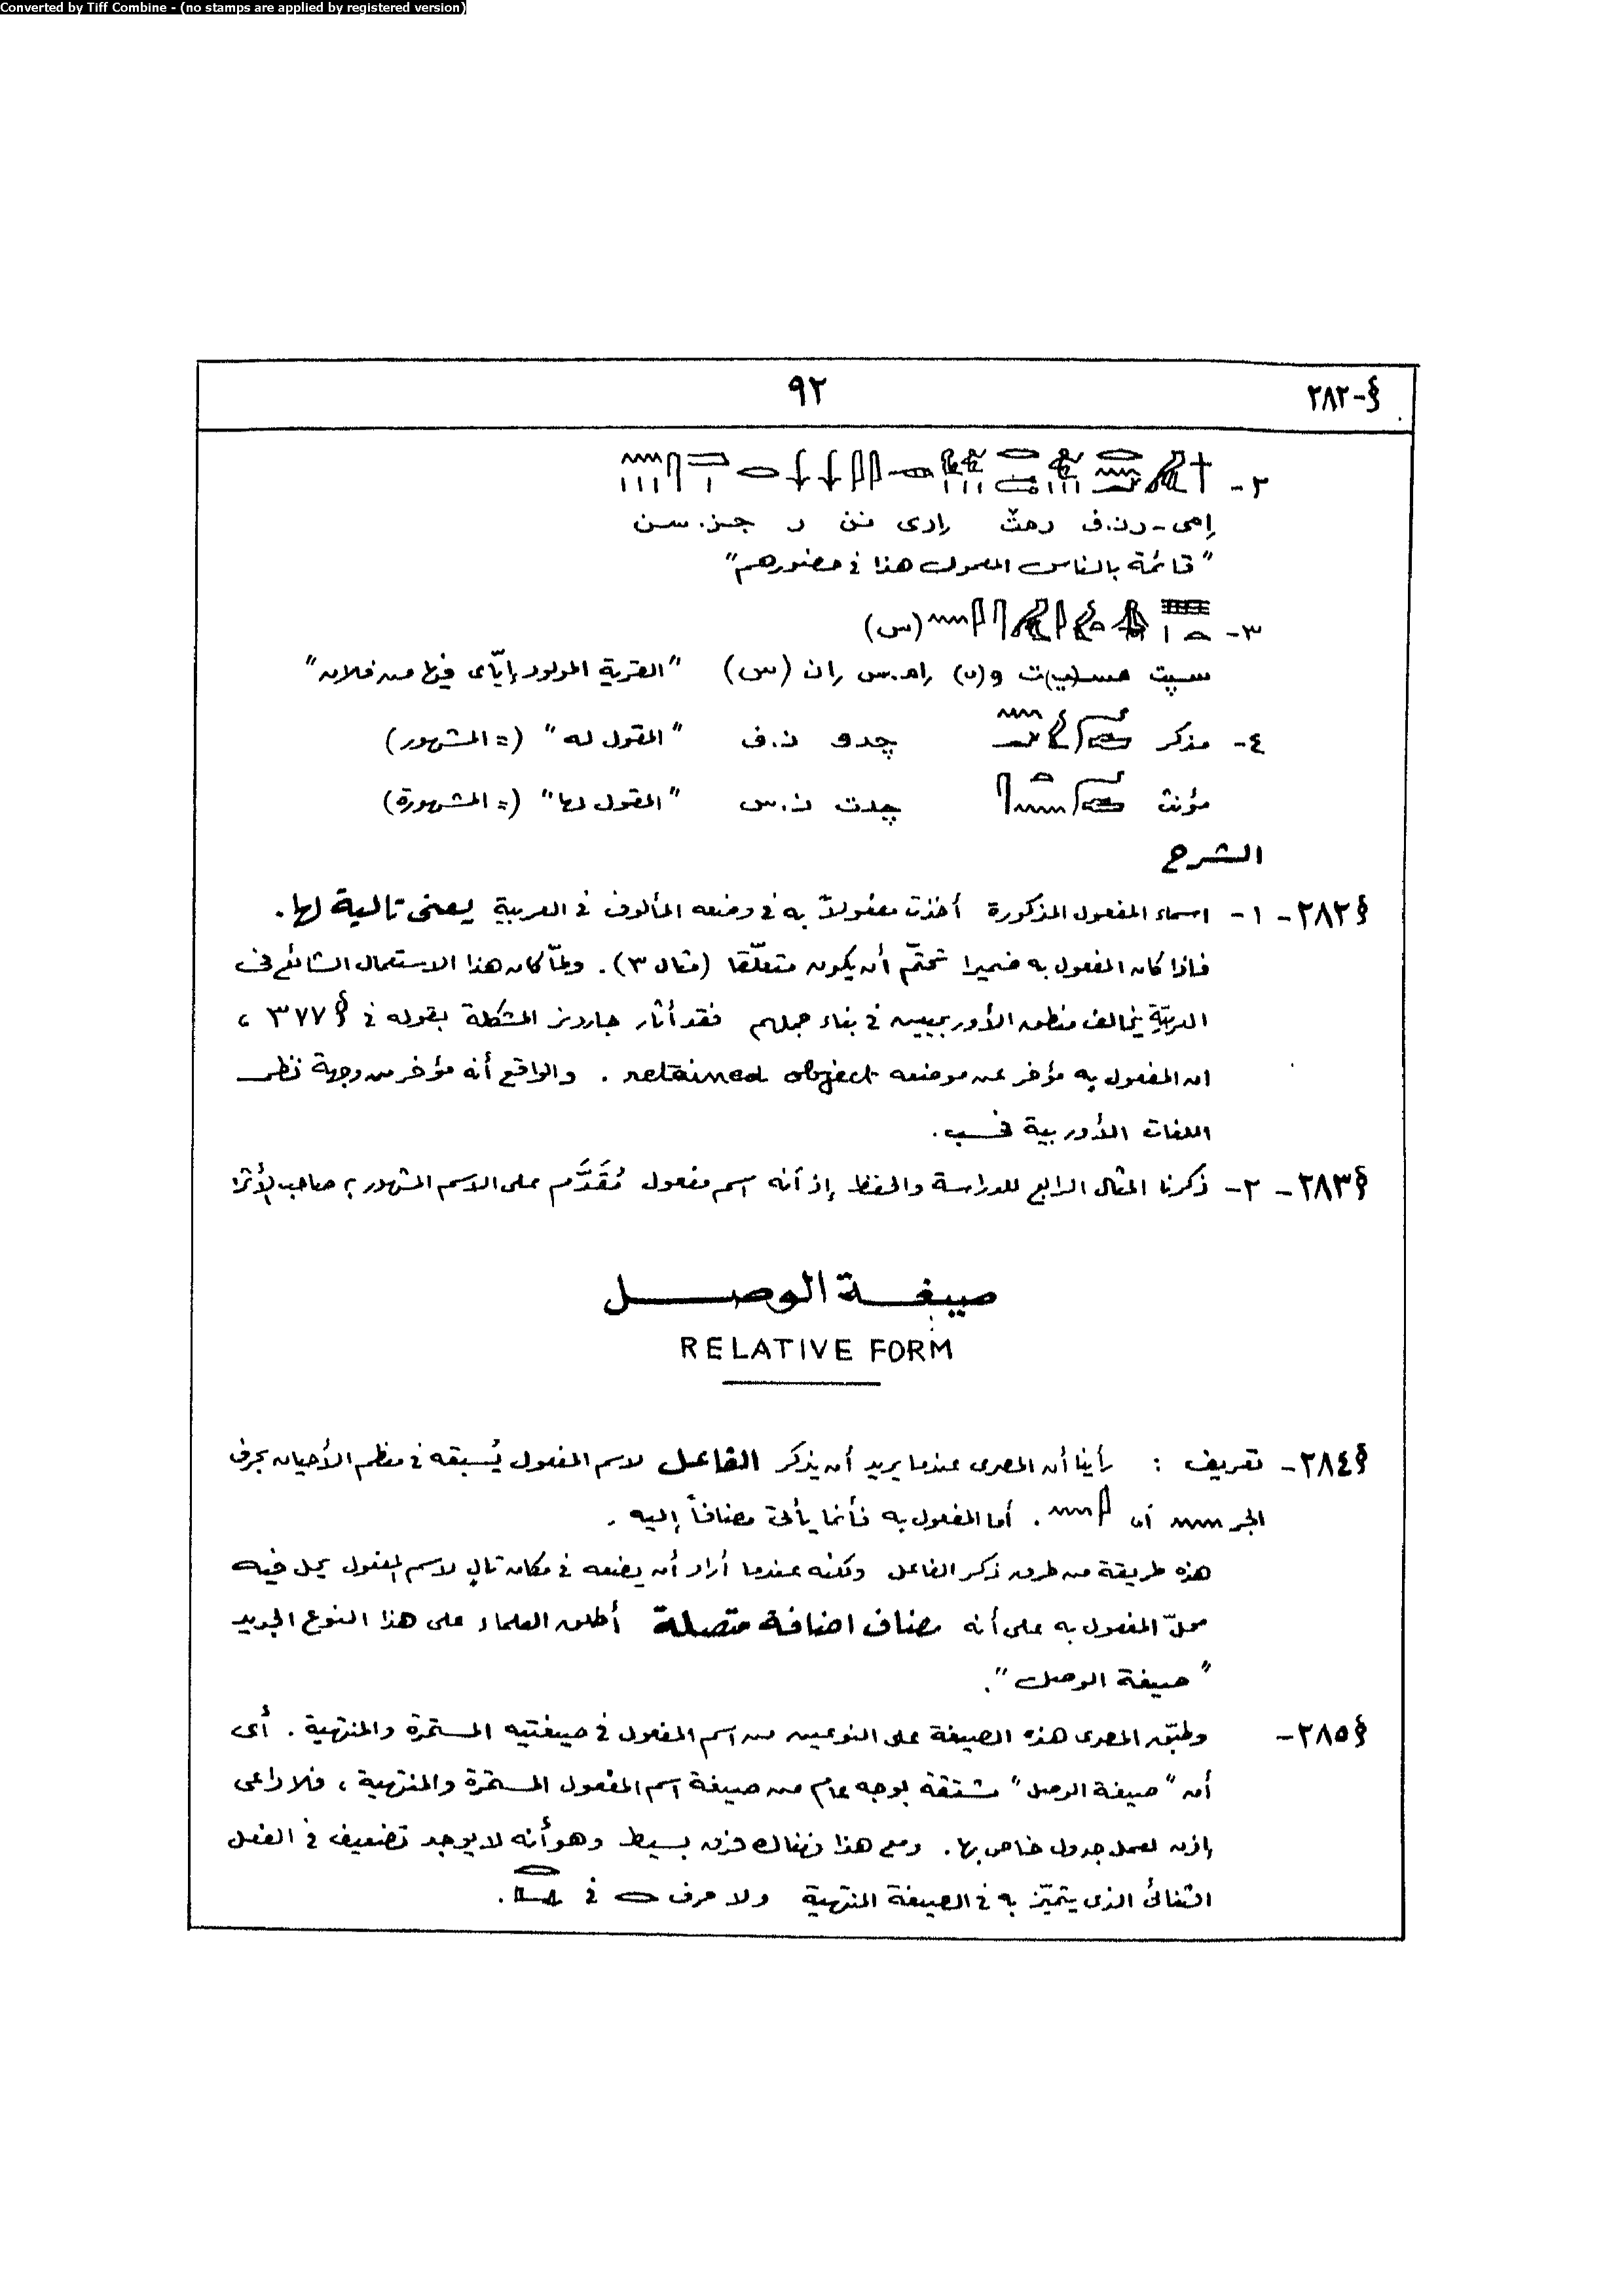 Converted by Tiff Combine - (no stamps are applied by registered version)
§-٢٨٢
٩٢
٢-
إمى-رن.ف رمث إرى نن ر جز.سن
"قائمة بالناس المعمول هذا فى حضورهم"
٣- (س)
سپت مس(ي)ت و(ى) إم.س إن (س) "القرية المولود إيّاى فيها من فلان"
٤- مذكر چدو ن.ف "المقول له" (= المشهور)
مؤنث چدت ن.س "المقول لها" (= المشهورة)
الشرح
§٢٨٢- ١- اسماء المفعول المذكورة أخذت مفعولاً به فى وضعه المألوف فى العربية يعنى تالية لها.
فاذا كان المفعول به ضميرا تحتّم أن يكون متعلّقا (مثال ٣). ولمّا كان هذا الاستعمال الشائع فى
العربيّة يخالف منطق الأوربيين فى بناء جملهم فقد أثار جاردنر المشكلة بقوله فى §٣٧٧،
ان المفعول به مؤخر عن موضعه retained object. والواقع أنه مؤخر من وجهة نظر
اللغات الأوربية فحسب.
§٢٨٣- ٢- ذكرنا المثال الرابع للدراسة والحفظ إذ أنه اسم مفعول مُقَدَّم على الاسم المشهور به صاحب الأثر
صيغة الوصل
RELATIVE FORM
§٢٨٤- تعريف : رأينا أن المصرى عندما يريد أن يذكر الفاعل لاسم المفعول يُسبقه فى معظم الأحيان بحرف
الجر أو . أما المفعول به فأنما يأتى مضافاً إليه.
هذه طريقة من طرق ذكر الفاعل ولكنه عندما أراد أن يضعه فى مكان تالٍ لاسم المفعول يحل فيه
محلّ المفعول به على أنه مضاف اضافة متصلة أطلق العلماء على هذا النوع الجديد
"صيغة الوصل".
§٢٨٥- وطبّق المصرى هذه الصيغة على النوعين من اسم المفعول فى صيغتيه المستمرة والمنتهية. أى
أن "صيغة الوصل" مشتقة بوجه عام من صيغة اسم المفعول المستمرة والمنتهية، فلا داعى
إذن لعمل جدول خاص بها. ومع هذا فهناك فرق بسيط وهو أنه لا يوجد تضعيف فى الفعل
الثنائى الذى يتميّز به فى الصيغة المنتهية ولا حرف فى .